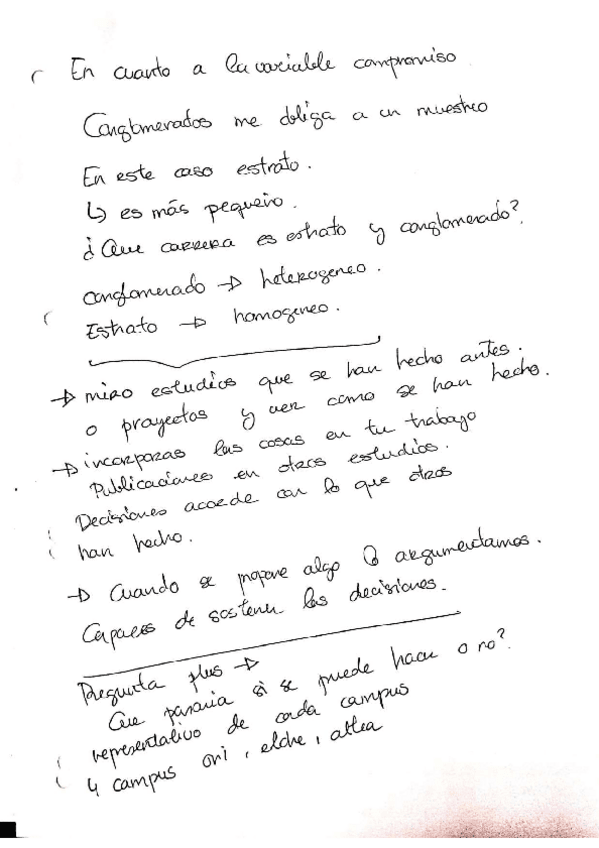 En cuanto a la variable compromiso
Conglomerados me obliga a un muestreo
En este caso estrato.
↳ es más pequeño.
¿Que carrera es estrato y conglomerado?
conglomerado → heterogeneo.
Estrato → homogeneo.
→ miro estudios que se han hecho antes.
o proyectos y ver como se han hecho.
→ incorporas las cosas en tu trabajo
Publicaciones en otros estudios.
Decisiones acorde con lo que otros
han hecho.
→ Cuando se propone algo lo argumentamos.
Capaces de sostener las decisiones.
Pregunta plus →
Que pasaria si se puede hacer o no?
representativo de cada campus
4 campus ori, elche, altea